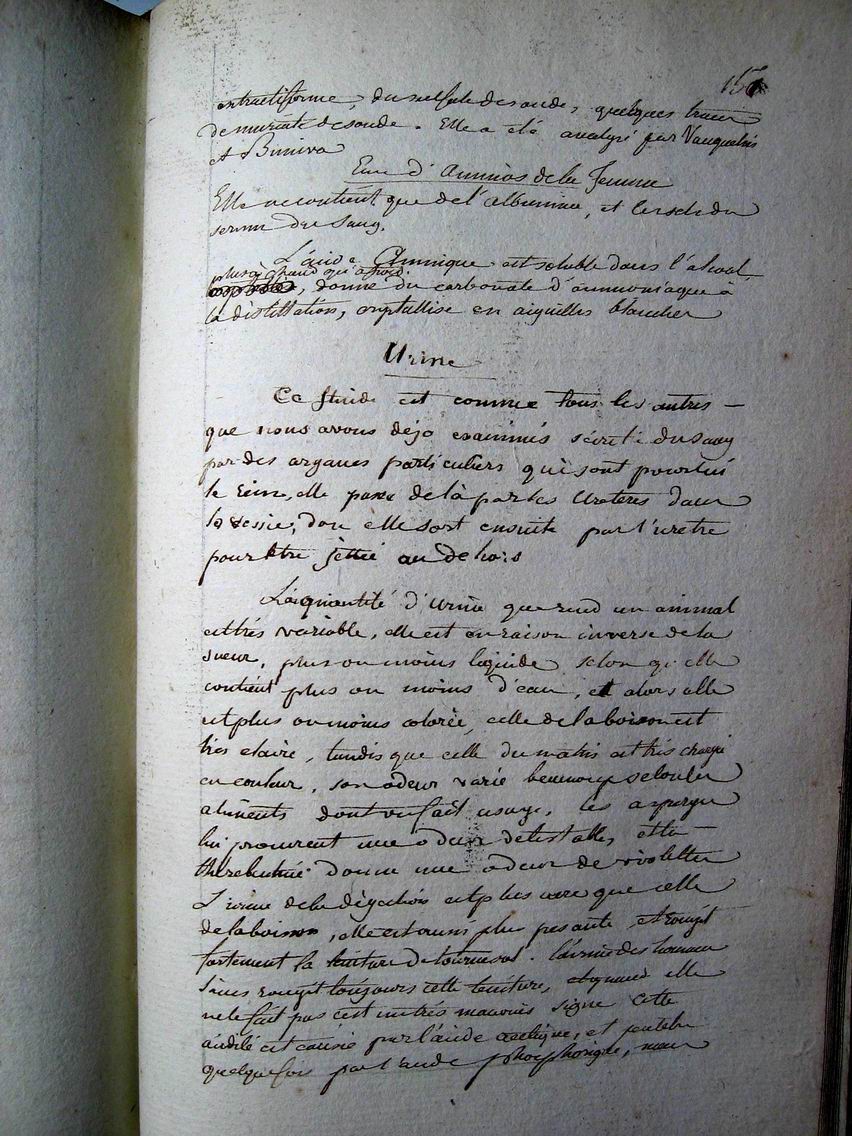 157
extractiforme, du sulfate de soude, quelques traces
de muriate de soude. Elle a été analysé par Vauquelin
et Buniva
Eau d'Amnios de la Femme
Elle ne contient que de l'albumine, et les sels du
serum du Sang.
L'acide Amnique est soluble dans l'alcool
plus à chaud qu'à froid.
, donne du carbonate d'ammoniaque à
la distillation, cristallise en aiguilles blanches
Urine
Ce fluide est comme tous les autres —
que nous avons déjà examinés sécrété du sang
par des organes particuliers qui sont pour lui
le Rein, elle passe de là par les Ureteres dans
la vessie, dou elle sort ensuite par l'uretre
pour être jettée au dehors
La quantité d'urine que rend un animal
est très variable, elle est en raison inverse de la
sueur, plus ou moins liquide selon qu'elle
contient plus ou moins d'eau, et alors elle
est plus ou moins colorée, celle de la boisson est
très claire, tandis que celle du matin est très chargé
en couleur, son odeur varie beaucoup selon les
aliments dont on fait usage, les asperges
lui procurent une odeur detestable, et la —
thérebentine donne une odeur de violette
L'urine de la digestion est plus acre que celle
de la boisson, elle est aussi plus pesante et rougit
fortement la teinture de tournesol. L'urine des hommes
sains rougit toujours cette teinture, et quand elle
ne le fait pas c'est un très mauvais signe cette
acidité est causée par l'acide acetique, et peut etre
quelquefois par l'acide phosphorique, mais